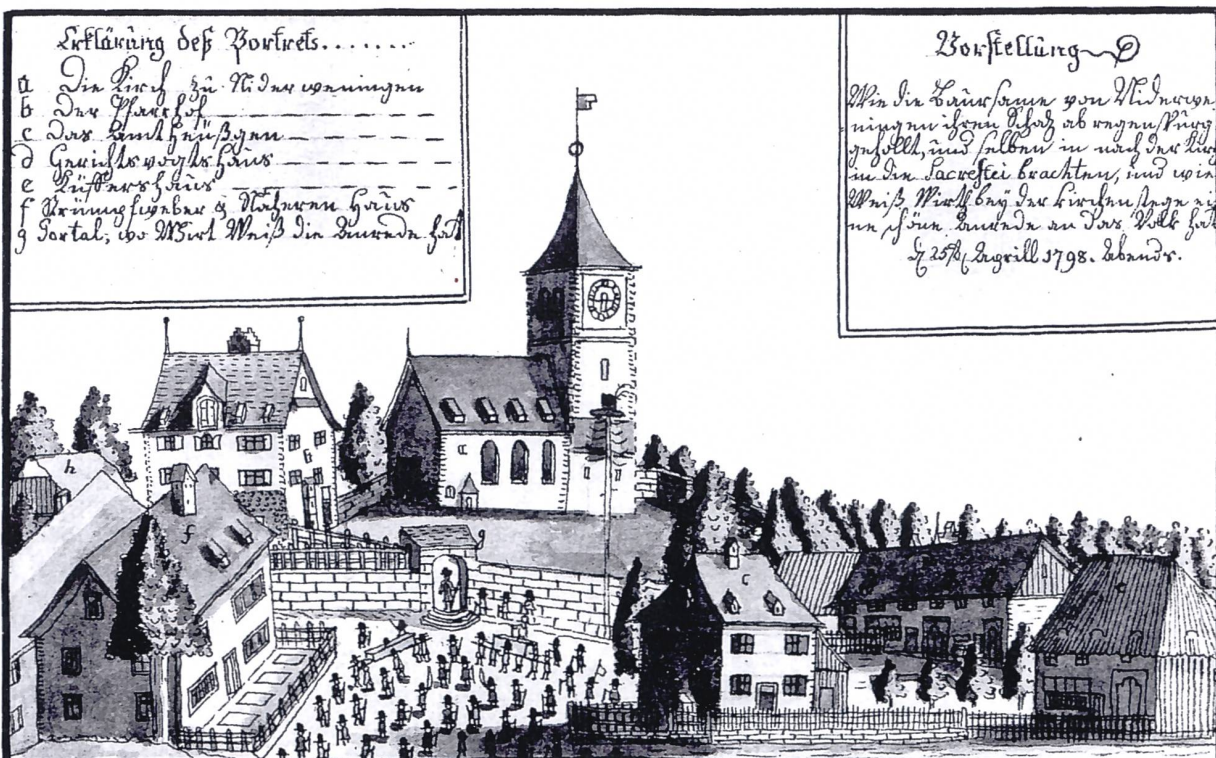 Erklärung deß Portrets.......
a Die Kirch zu Niderweningen
b Der Pfarrhof
c Das Amthäußgen
d Gerichtsvogts Haus
e Küffers Haus
f Strümpfweber & Näheren Haus
g Portal, wo Wirt Weiß die Anrede hat
Vorstellung
Wie die Baursame von Niderwe-
ningen ihren Schaz ab regenspurg
gehollt, und selben in nach der Kir
in die Sacrestei brachten, und wie
Weiß Wirth bey der kirchenstege ei-
ne schöne Anrede an das Volk hat
25 Aprill 1798. Abends.
h
f
c
e
g